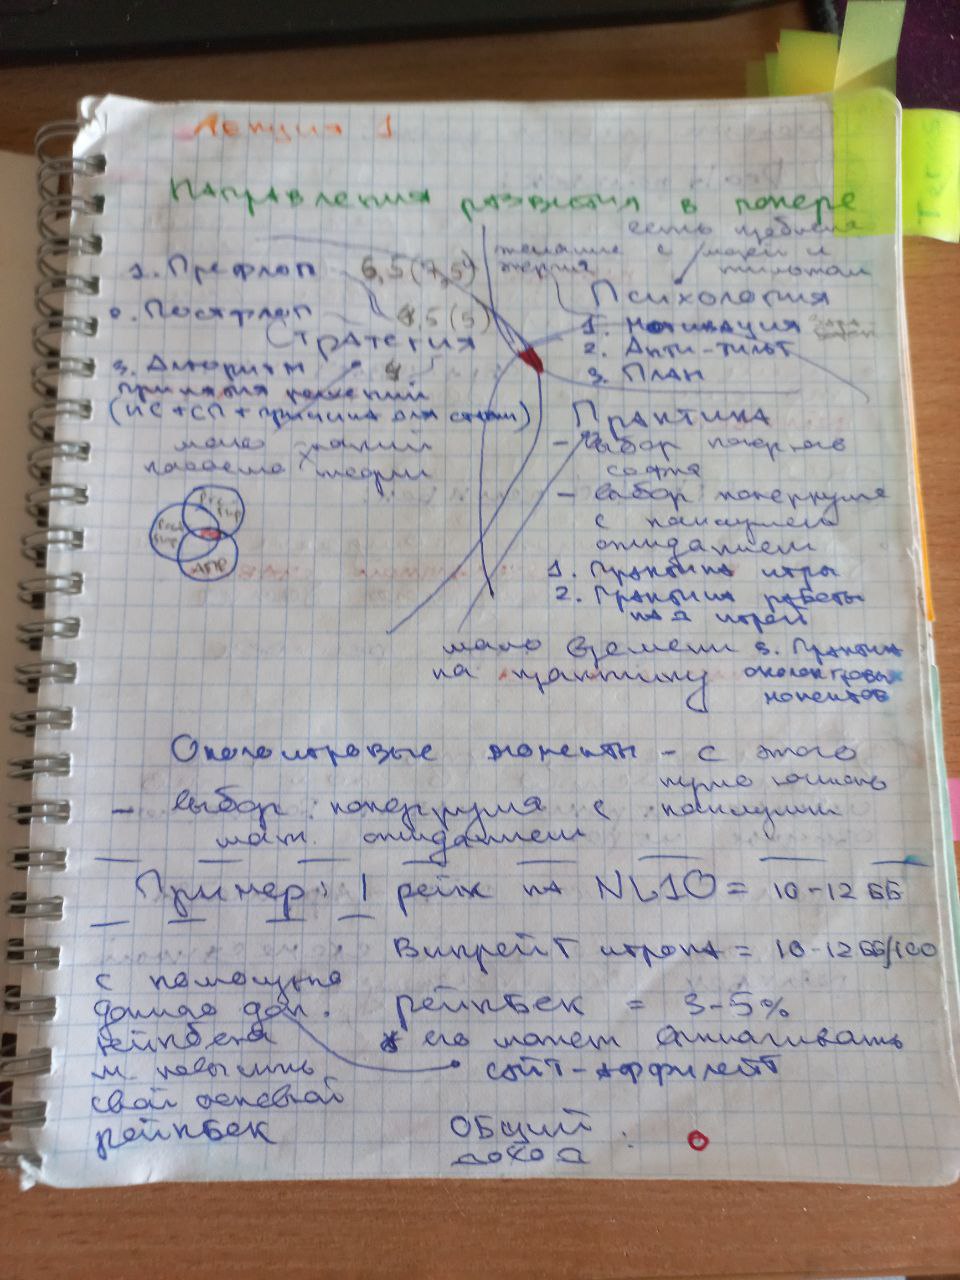 Лекция 1
Направления развития в покере
1. Префлоп 6,5 (7,5)
2. Постфлоп 4,5 (5)
Стратегия
3. Алгоритм 4
принятия решений
(ИС + СП + причина для ставки)
мало знаний
теории
Pre flop
Post flop
АПР
желание
есть
с
тильтом
Психология
1. Мотивация
2. Анти-тильт
3. План
Практика
- выбор покерного
софта
- выбор покеррума
с наилучшим
ожиданием
1. Практика игры
2. Практика работы
над игрой
3. Практика
околоигровых
моментов
мало времени
на практику
Околоигровые моменты - с этого
нужно начинать
- выбор покеррума с наилучшим
мат. ожиданием
Пример: 1 рейк на NL10 = 10-12 ББ
Винрейт игрока = 10-12 ББ/100
с помощью
данного доп.
рейкбека
м. повысить
свой основной
рейкбек
Рейкбек = 3-5%
* его может выплачивать
сайт-аффилейт
Общий
доход :